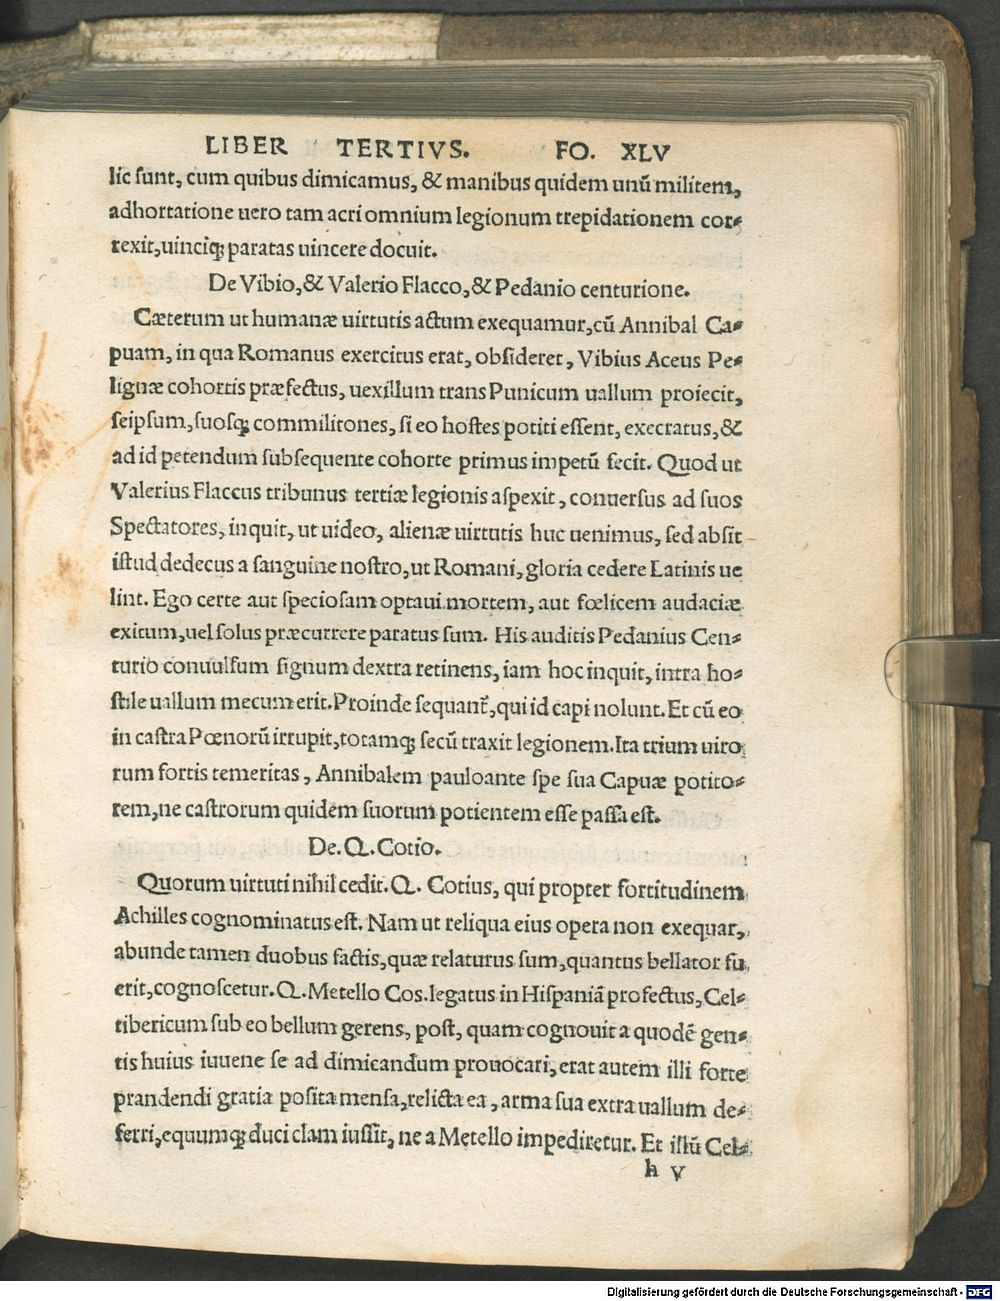 LIBER TERTIVS. FO. XLV
lic sunt, cum quibus dimicamus, & manibus quidem unũ militem,
adhortatione uero tam acri omnium legionum trepidationem cor-
rexit, uinciq; paratas uincere docuit.
De Vibio, & Valerio Flacco, & Pedanio centurione.
Cæterum ut humanæ uirtutis actum exequamur, cũ Annibal Ca-
puam, in qua Romanus exercitus erat, obsideret, Vibius Aceus Pe-
lignæ cohortis præfectus, uexillum trans Punicum uallum proiecit,
seipsum, suosq; commilitones, si eo hostes potiti essent, execratus, &
ad id petendum subsequente cohorte primus impetũ fecit. Quod ut
Valerius Flaccus tribunus tertiæ legionis aspexit, conuersus ad suos
Spectatores, inquit, ut uideo, alienæ uirtutis huc uenimus, sed absit
istud dedecus a sanguine nostro, ut Romani, gloria cedere Latinis ue
lint. Ego certe aut speciosam optaui mortem, aut fœlicem audaciæ
exitum, uel solus præcurrere paratus sum. His auditis Pedanius Cen-
turio conuulsum signum dextra retinens, iam hoc inquit, intra ho-
stile uallum mecum erit. Proinde sequant̃, qui id capi nolunt. Et cũ eo
in castra Pœnorũ irrupit, totamq; secũ traxit legionem. Ita trium uiro
rum fortis temeritas, Annibalem pauloante spe sua Capuæ potito-
rem, ne castrorum quidem suorum potientem esse passa est.
De. Q. Cotio.
Quorum uirtuti nihil cedit. Q. Cotius, qui propter fortitudinem
Achilles cognominatus est. Nam ut reliqua eius opera non exequar,
abunde tamen duobus factis, quæ relaturus sum, quantus bellator fu
erit, cognoscetur. Q. Metello Cos. legatus in Hispaniã profectus, Cel-
tibericum sub eo bellum gerens, post, quam cognouit a quodẽ gen-
tis huius iuuene se ad dimicandum prouocari, erat autem illi forte
prandendi gratia posita mensa, relicta ea, arma sua extra uallum de-
ferri, equumq; duci clam iussit, ne a Metello impediretur. Et illũ Cel-
h v
Digitalisierung gefördert durch die Deutsche Forschungsgemeinschaft - DFG